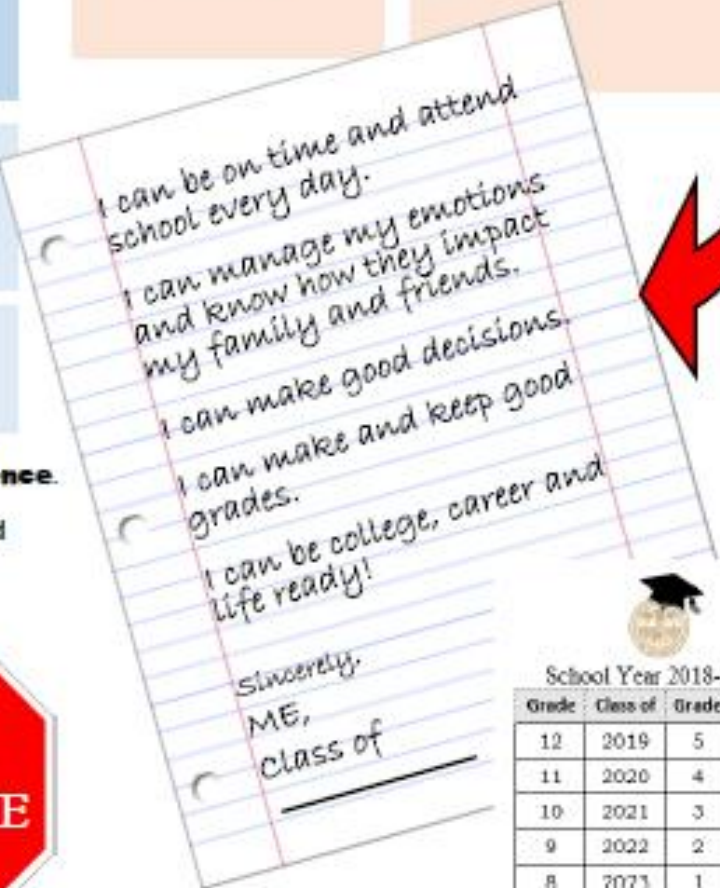 I can be on time and attend
school every day.
I can manage my emotions
and know how they impact
my family and friends.
I can make good decisions.
I can make and keep good
grades.
I can be college, career and
life ready!
Sincerely,
ME,
Class of
School Year 2018-
Grade Class of Grade
12 2019 5
11 2020 4
10 2021 3
9 2022 2
8 2023 1